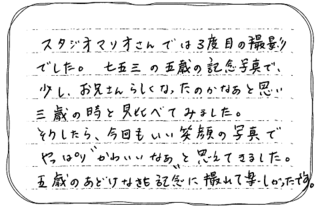 スタジオマリオさんでは3度目の撮影
でした。七五三の五歳の記念写真で、
少し、お兄さんらしくなったのかなあと思い
三歳の時と見比べてみました。
そしたら、今回もいい笑顔の写真で
やっぱり“かわいいなあ”と思えてきました。
五歳のあどけなさも記念に撮れて楽しかったです。